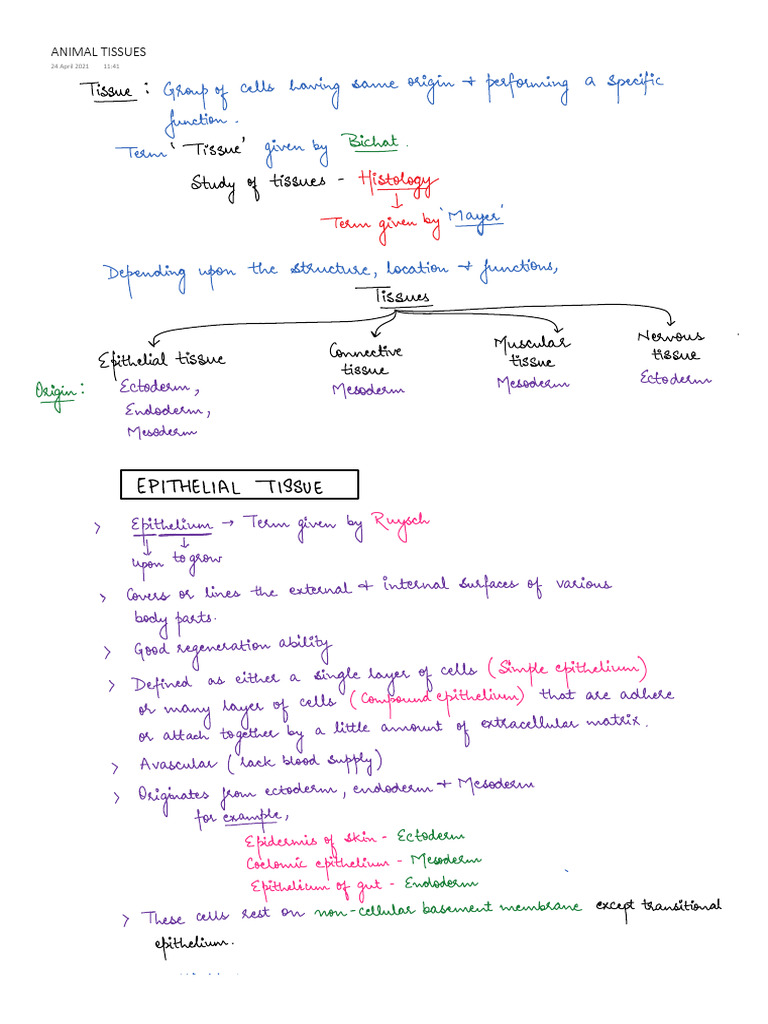 ANIMAL TISSUES
24 April 2021 11:41
Tissue : Group of cells having same origin & performing a specific
function.
Term 'Tissue' given by Bichat.
Study of tissues - Histology
Term given by 'Mayer'
Depending upon the structure, location & functions,
Tissues
Epithelial tissue Connective tissue Muscular tissue Nervous tissue
Origin : Ectoderm, Mesoderm Mesoderm Ectoderm
Endoderm,
Mesoderm
EPITHELIAL TISSUE
> Epithelium → Term given by Ruysch
upon to grow
> Covers or lines the external & internal surfaces of various
body parts.
> Good regeneration ability
> Defined as either a single layer of cells (Simple epithelium)
or many layer of cells (Compound epithelium) that are adhere
or attach together by a little amount of extracellular matrix.
> Avascular (lack blood supply)
> Originates from ectoderm, endoderm & Mesoderm
for example,
Epidermis of skin - Ectoderm
Coelomic epithelium - Mesoderm
Epithelium of gut - Endoderm
> These cells rest on non-cellular basement membrane except transitional
epithelium.